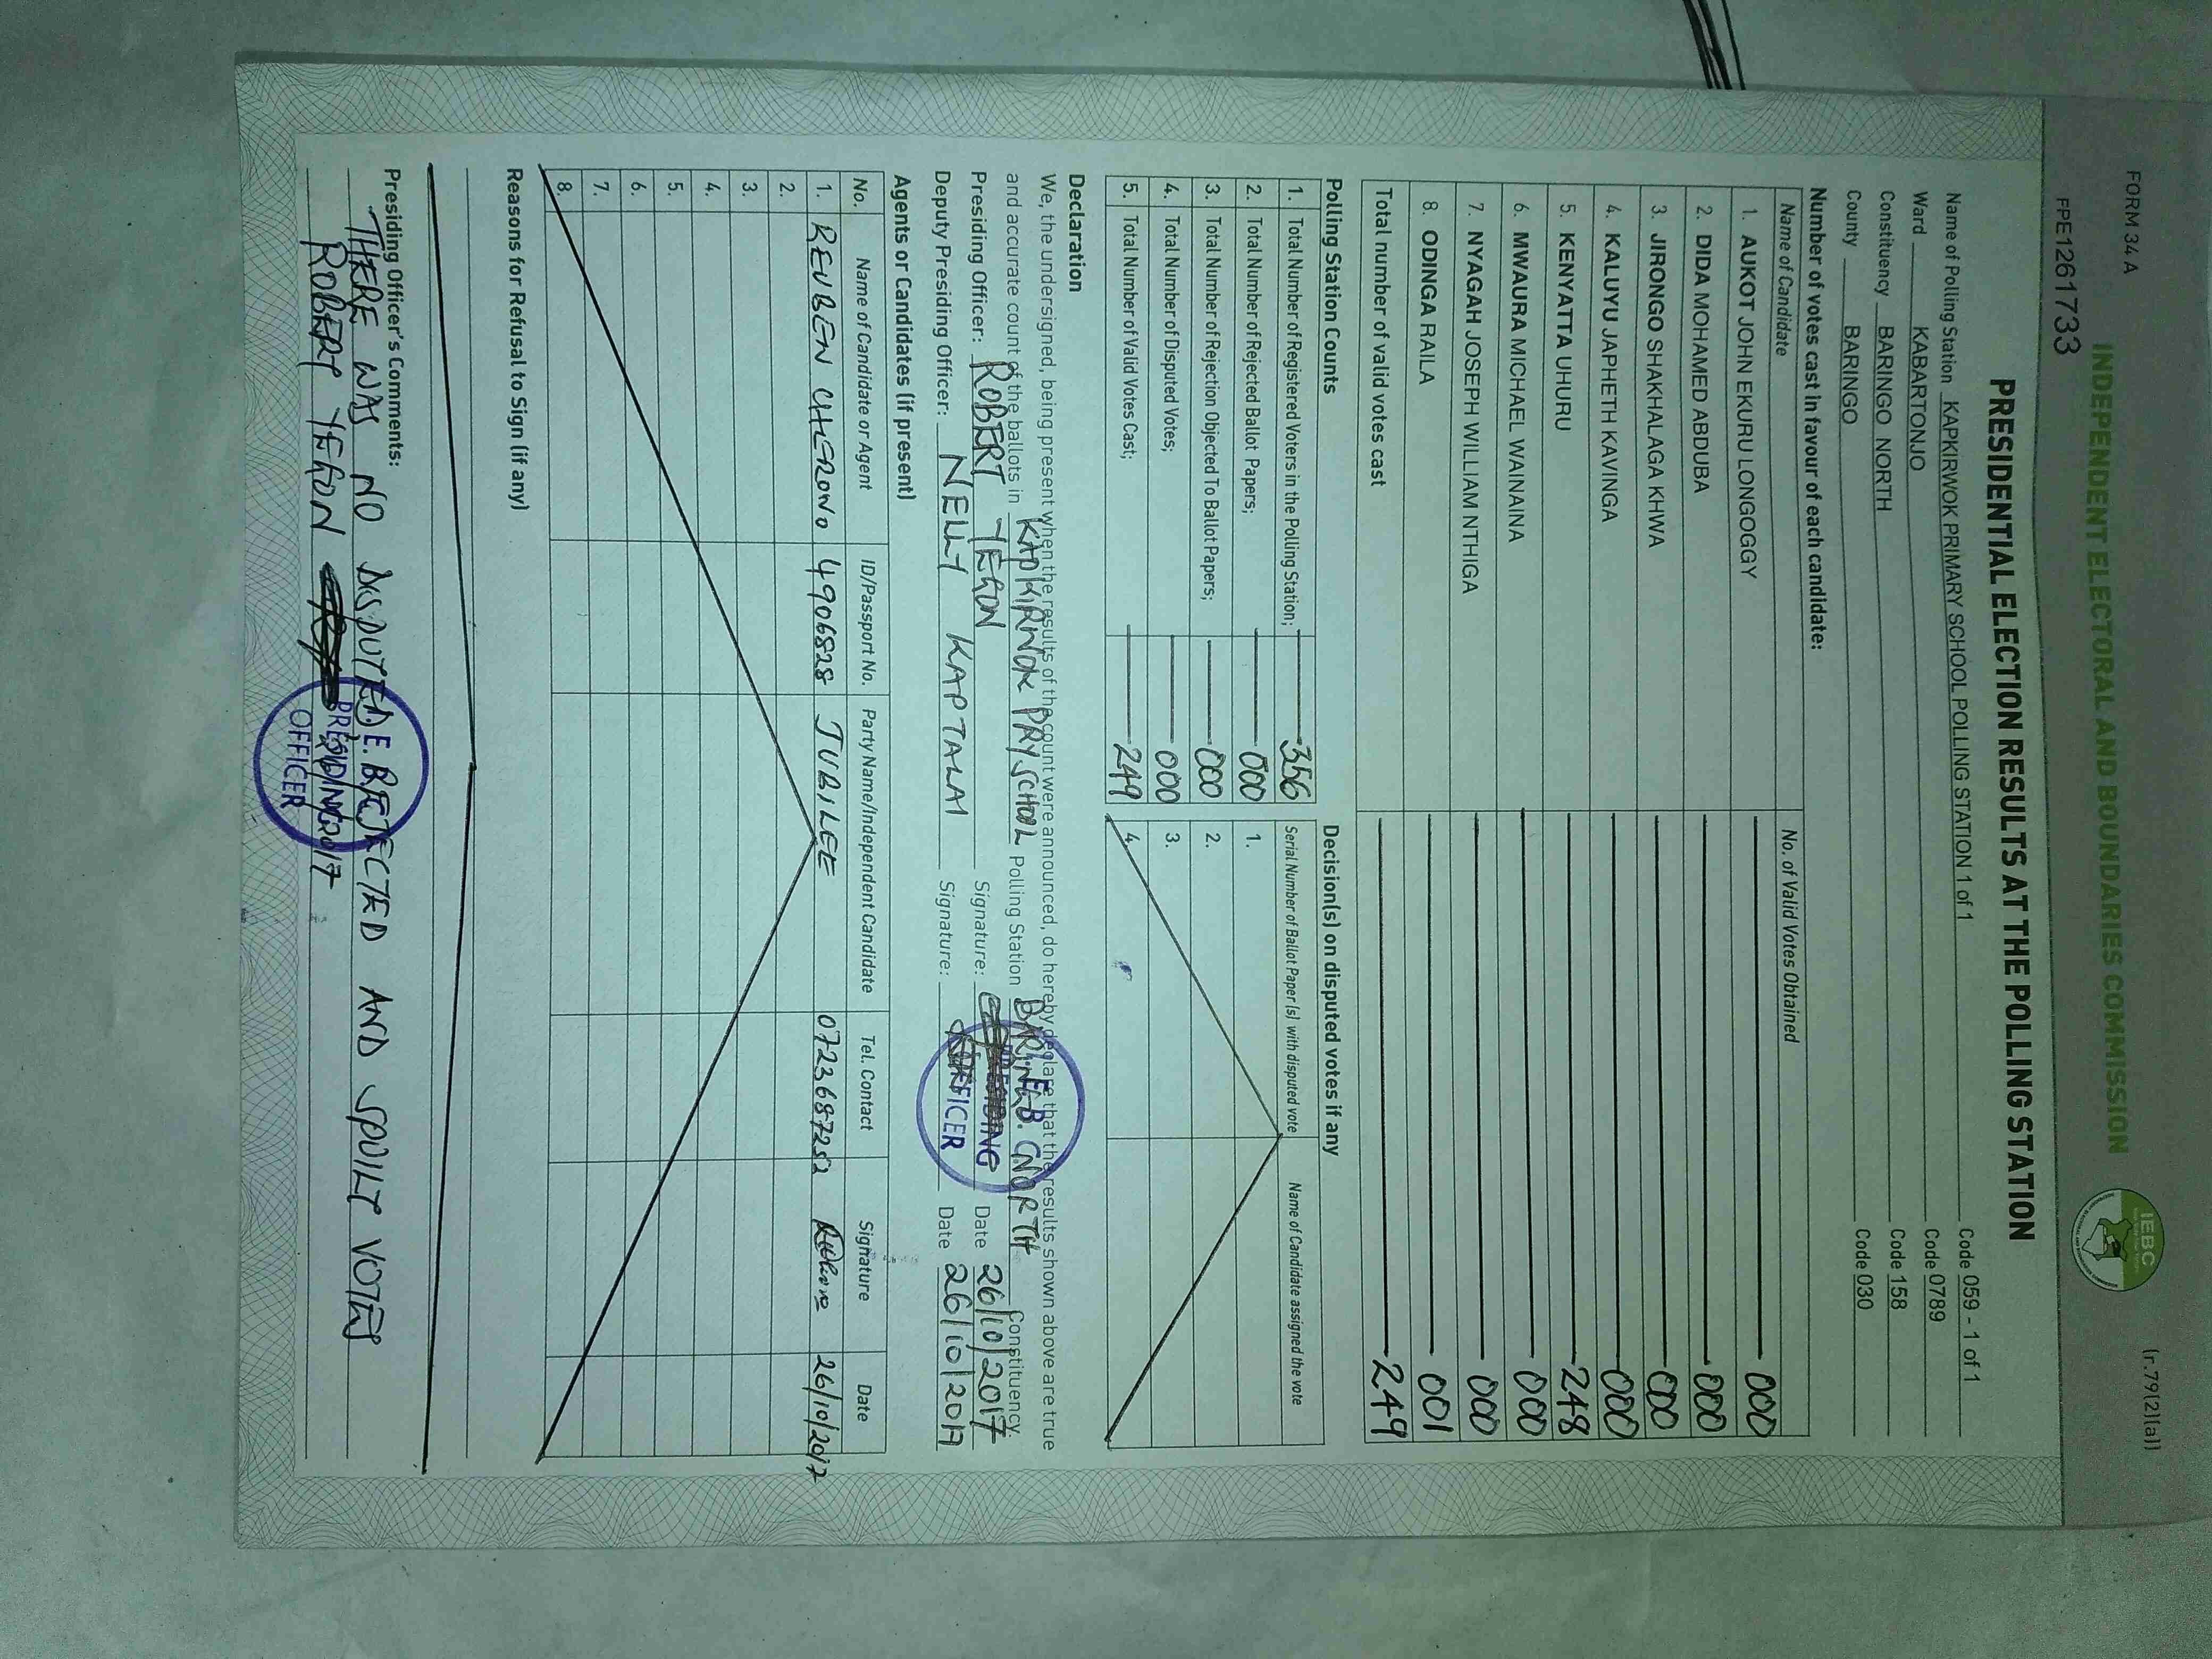 FORM 34 A
(r.79(2)(a))
INDEPENDENT ELECTORAL AND BOUNDARIES COMMISSION
IEBC
FPE1261733
PRESIDENTIAL ELECTION RESULTS AT THE POLLING STATION
Name of Polling Station KAPKIRWOK PRIMARY SCHOOL POLLING STATION 1 of 1 Code 059 - 1 of 1
Ward KABARTONJO Code 0789
Constituency BARINGO NORTH Code 158
County BARINGO Code 030
Number of votes cast in favour of each candidate:
Name of Candidate No. of Valid Votes Obtained
1. AUKOT JOHN EKURU LONGOGGY 000
2. DIDA MOHAMED ABDUBA 000
3. JIRONGO SHAKHALAGA KHWA 000
4. KALUYU JAPHETH KAVINGA 000
5. KENYATTA UHURU 248
6. MWAURA MICHAEL WAINAINA 000
7. NYAGAH JOSEPH WILLIAM NTHIGA 000
8. ODINGA RAILA 001
Total number of valid votes cast 249
Polling Station Counts
1. Total Number of Registered Voters in the Polling Station; 356
2. Total Number of Rejected Ballot Papers; 000
3. Total Number of Rejection Objected To Ballot Papers; 000
4. Total Number of Disputed Votes; 000
5. Total Number of Valid Votes Cast; 249
Decision(s) on disputed votes if any
Serial Number of Ballot Paper (s) with disputed vote Name of Candidate assigned the vote
1.
2.
3.
4.
Declaration
We, the undersigned, being present when the results of the count were announced, do hereby declare that the results shown above are true
and accurate count of the ballots in KAPKIRWOK PRY SCHOOL Polling Station BARINGO NORTH Constituency.
Presiding Officer: ROBERT YEGON Signature: Date 26/10/2017
Deputy Presiding Officer: NELLY KAPTALAI Signature: Date 26/10/2017
PRESIDING
OFFICER
Agents or Candidates (if present)
No. Name of Candidate or Agent ID/Passport No. Party Name/Independent Candidate Tel. Contact Signature Date
1. REUBEN CHERONO 4906828 JUBILEE 0723687252 26/10/2017
2.
3.
4.
5.
6.
7.
8
Reasons for Refusal to Sign (if any)
Presiding Officer's Comments:
THERE WAS NO DISPUTED, REJECTED AND SPOILT VOTES
ROBERT YEGON
PRESIDING
OFFICER